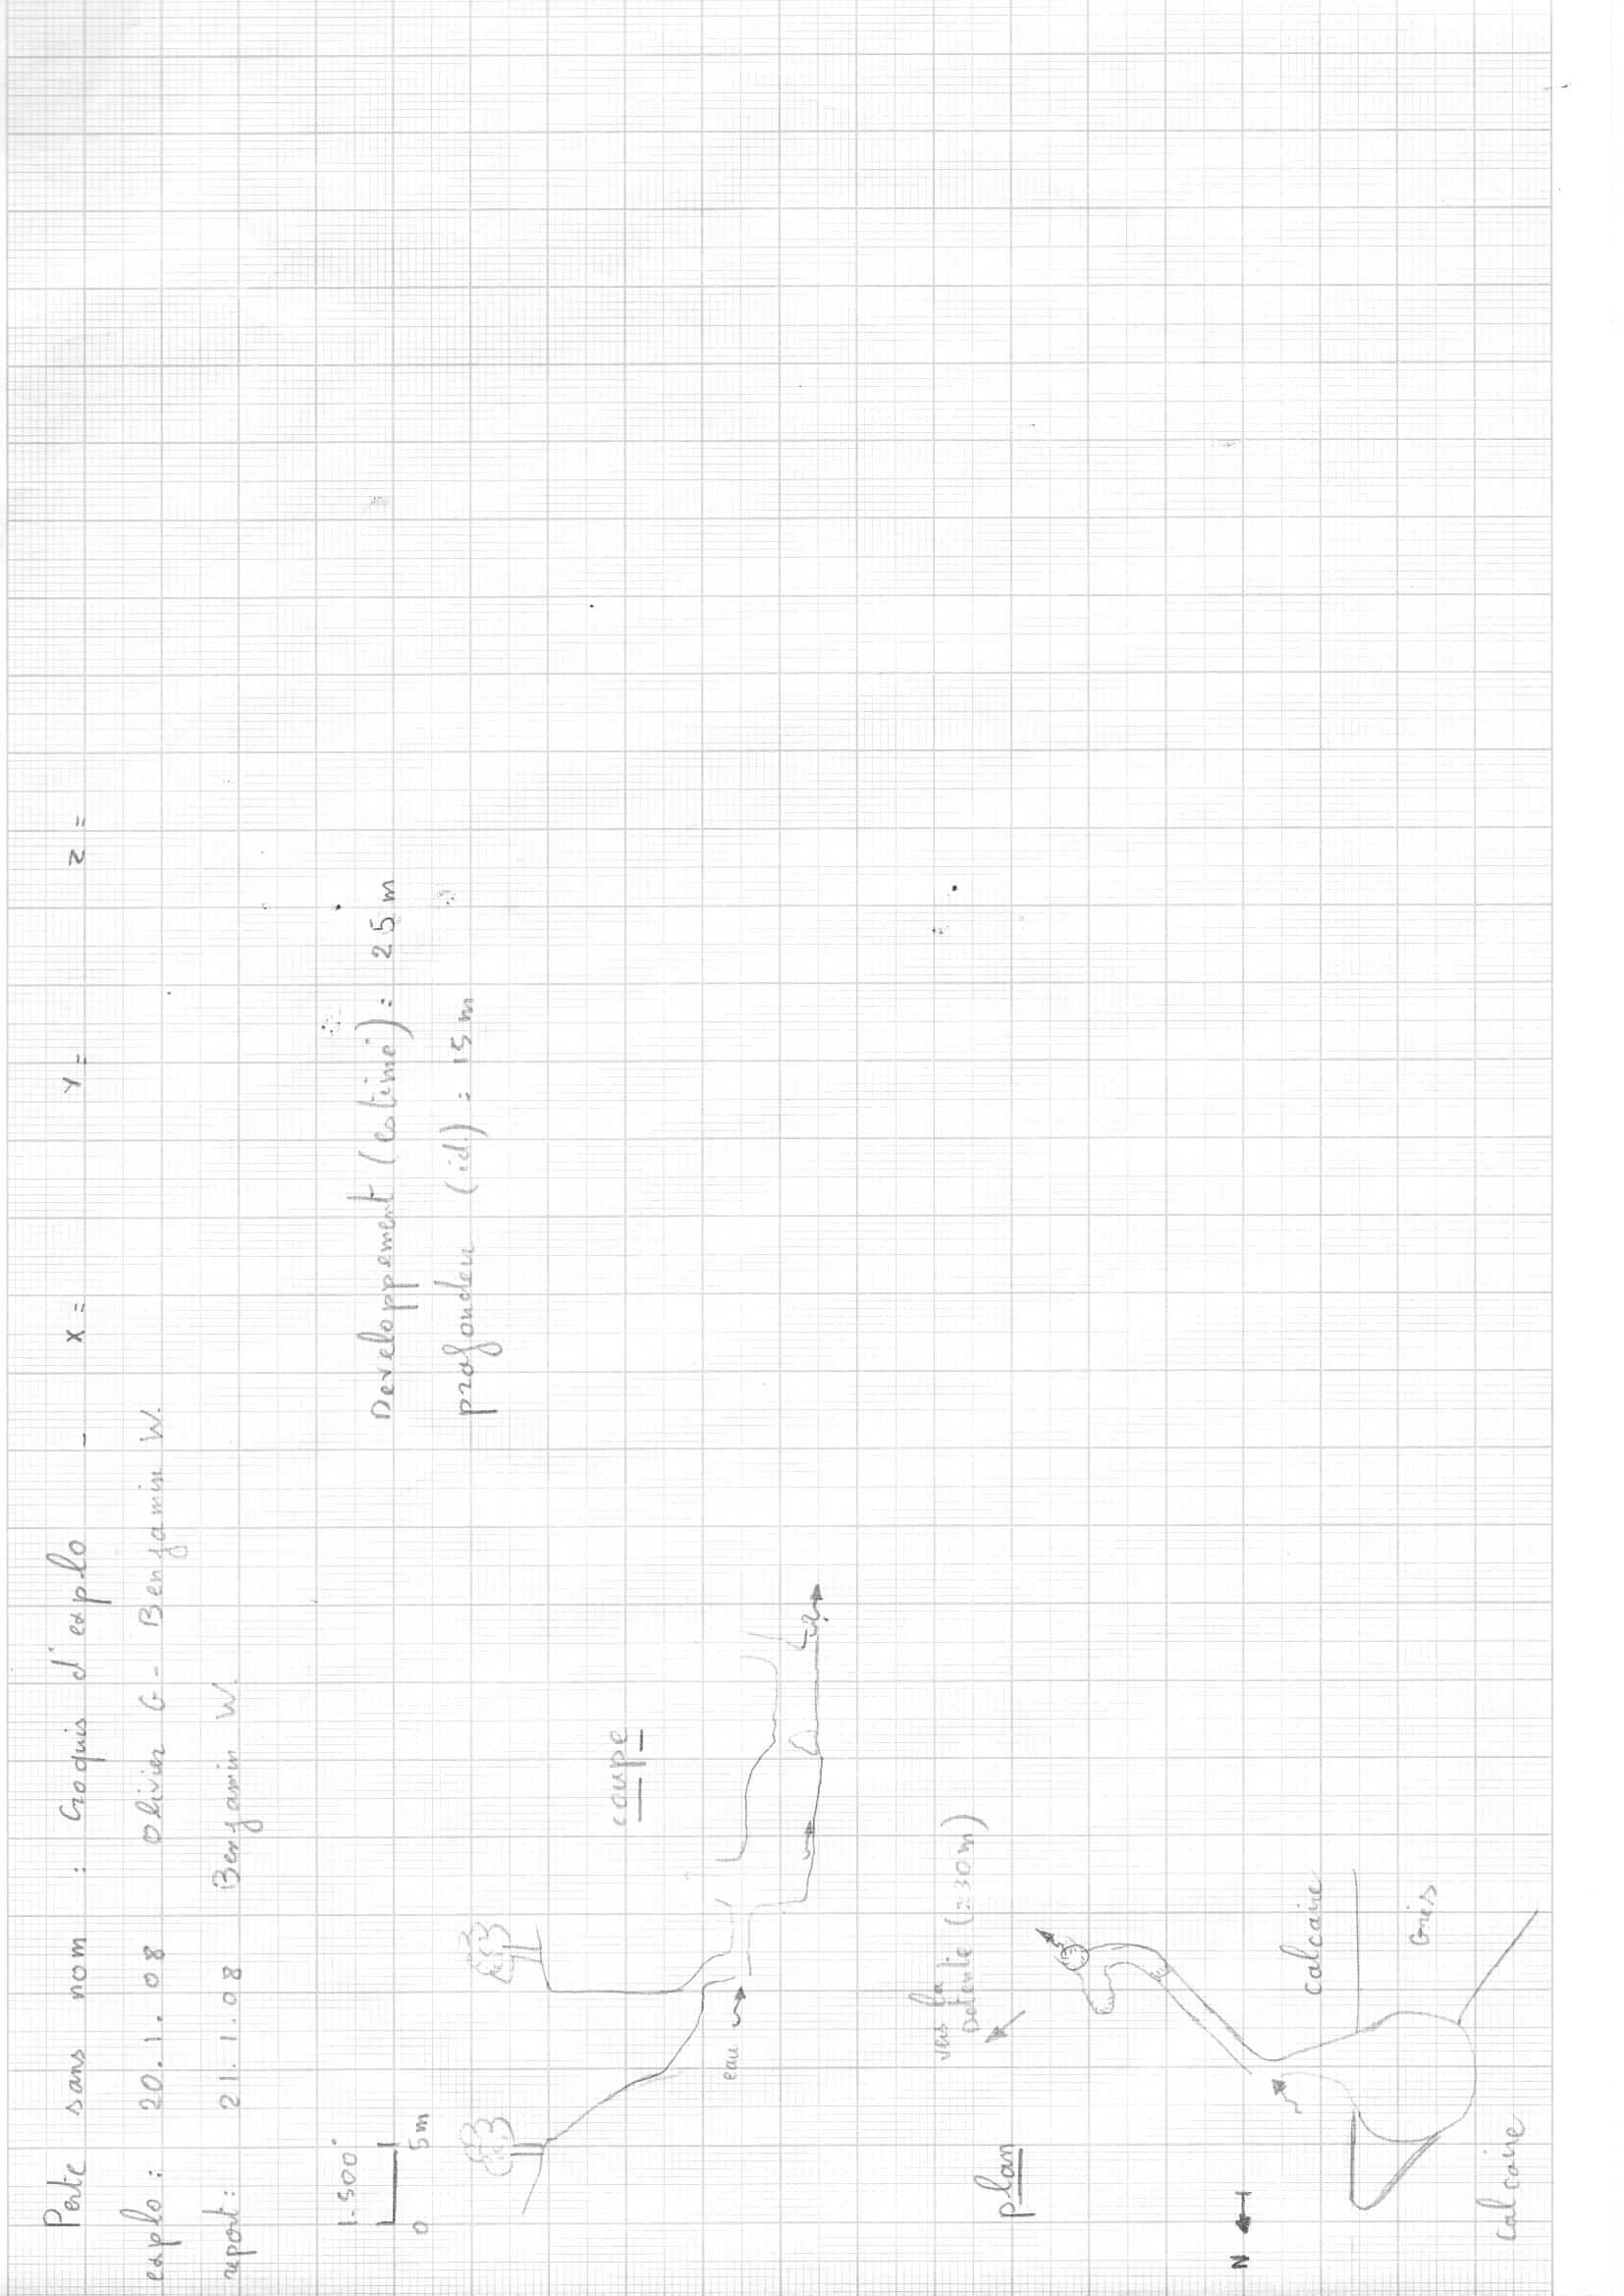 Perte sans nom : Croquis d'explo - X = Y = Z =
explo : 20.1.08 Olivier G - Benjamin W.
report : 21.1.08 Benjamin W.
1.500°
0 5m
Developpement (estimé) : 25 m
profondeur (id) : 15 m
coupe
eau
?
plan
vers la
Detente (≃30m)
N
calcaire
Grès
calcaire